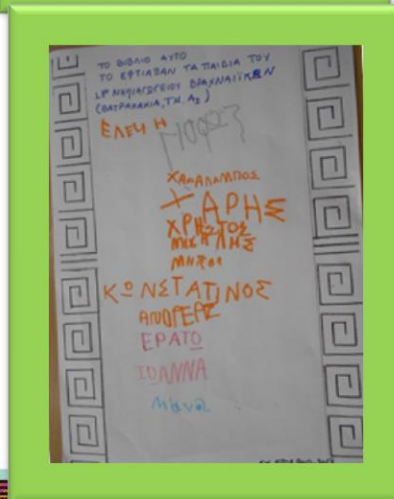 ΤΟ ΒΙΒΛΙΟ ΑΥΤΟ
ΤΟ ΕΦΤΙΑΞΑΝ ΤΑ ΠΑΙΔΙΑ ΤΟΥ
ΝΗΠΙΑΓΩΓΕΙΟΥ ΒΡΑΧΝΑΙΙΚΩΝ
(ΒΑΤΡΑΧΑΚΙΑ, ΤΜ. Α2)
ΕΛΕΝΗ
ΧΑΡΑΛΑΜΠΟΣ
ΧΑΡΗΣ
ΧΡΗΣΤΟΣ
ΜΙΧΑΛΗΣ
ΚΩΝΣΤΑΤΙΝΟΣ
ΑΝΔΡΕΑΣ
ΕΡΑΤΩ
ΙΩΑΝΝΑ